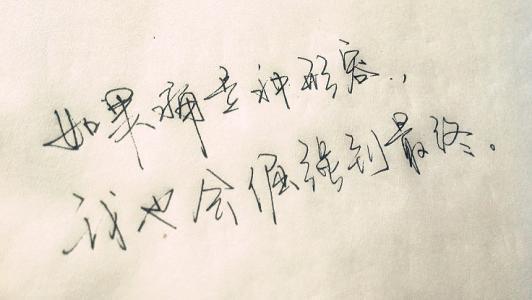 如果痛是种形容..,
我也会倔强到最终。